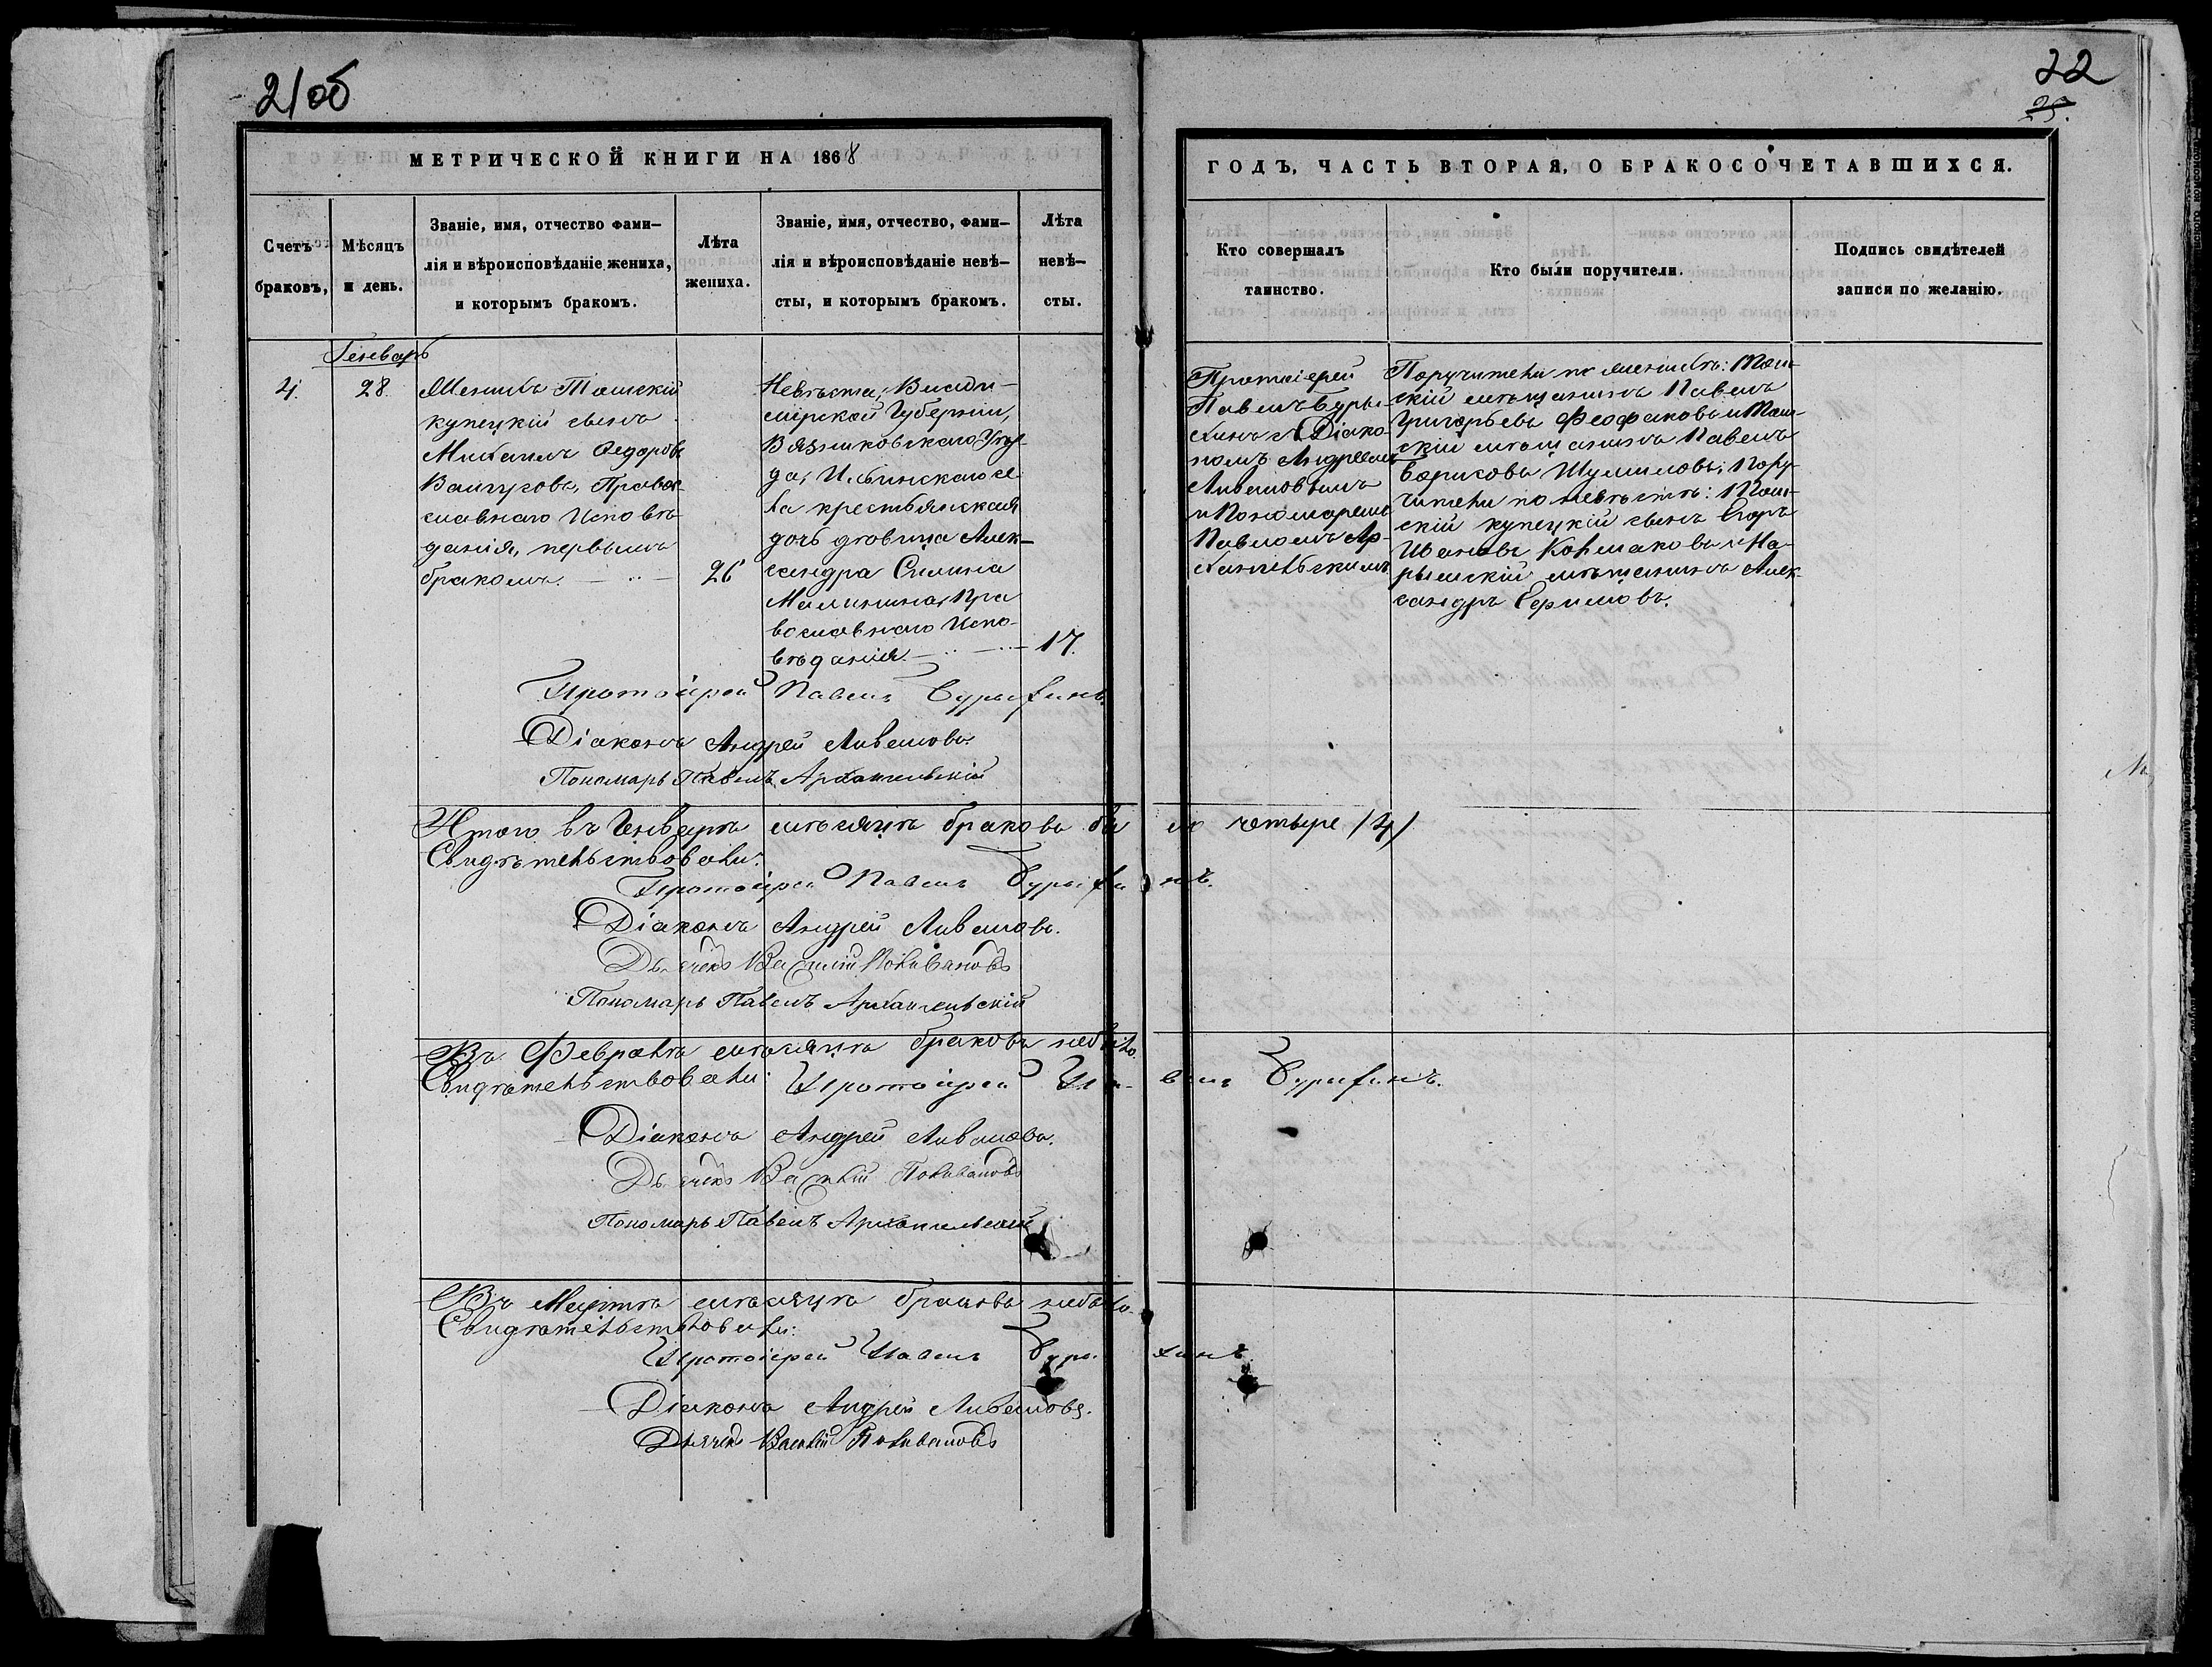 21об
22
25.
МЕТРИЧЕСКОЙ КНИГИ НА 1868
ГОДЪ, ЧАСТЬ ВТОРАЯ, О БРАКОСОЧЕТАВШИХСЯ.
Счетъ
браковъ,
Мѣсяцъ
и день.
Званіе, имя, отчество фами-
лія и вѣроисповѣданіе жениха,
и которымъ бракомъ.
Лѣта
жениха.
Званіе, имя, отчество, фами-
лія и вѣроисповѣданіе невѣ-
сты, и которымъ бракомъ.
Лѣта
невѣ-
сты.
Кто совершалъ
таинство.
Кто были поручители.
Подпись свидѣтелей
записи по желанію.
Генварь
4.
28
Женихъ Томскій
купецкій сынъ
Михаилъ Ѳедоровъ
Правос-
лавнаго Исповѣ-
данія, первымъ
бракомъ.
26
Невѣста, Влади-
мірской Губерніи,
Вязниковскаго Уѣз-
да, се-
ла крестьянская
дочь дѣвица Алек-
сандра
Малинина, Пра
вославнаго Испо-
вѣданія.
17.
Протоіерей
Павелъ Буры-
хинъ съ Діако-
номъ Андреемъ
Ливановымъ
и Пономаремъ
Павломъ Ар-
хангельскимъ
Поручители по женихѣ: Том-
скій мѣщанинъ Павелъ
Григорьевъ Феофановъ и Том-
скій мѣщанинъ Павелъ
Борисовъ Шумиловъ; Пору-
чители по невѣстѣ: Том-
скій купецкій сынъ Егоръ
Ивановъ и На-
рымскій мѣщанинъ Алек-
сандръ
Протоіерей Павелъ Бурыхинъ.
Діаконъ Андрей Ливановъ.
Пономарь Павелъ Архангельскій
Итого въ Генварѣ мѣсяцѣ браковъ бы ло четыре /4/
Свидѣтельствовали:
Протоіерей Павелъ Бурыхи нъ.
Діаконъ Андрей Ливановъ.
Дьячекъ Василій Поливановъ
Пономарь Павелъ Архангельскій
Въ Февралѣ мѣсяцѣ браковъ небыло.
Свидѣтельствовали: Протоіерей Па- велъ Бурыхинъ.
Діаконъ Андрей Ливановъ.
Дьячекъ Василій Поливановъ
Пономарь Павелъ Архангельскій
Въ Мартѣ мѣсяцѣ браковъ небыло.
Свидѣтельствовали:
Протоіерей Павелъ Буры хинъ.
Діаконъ Андрей Ливановъ.
Дьячекъ Василій Поливановъ